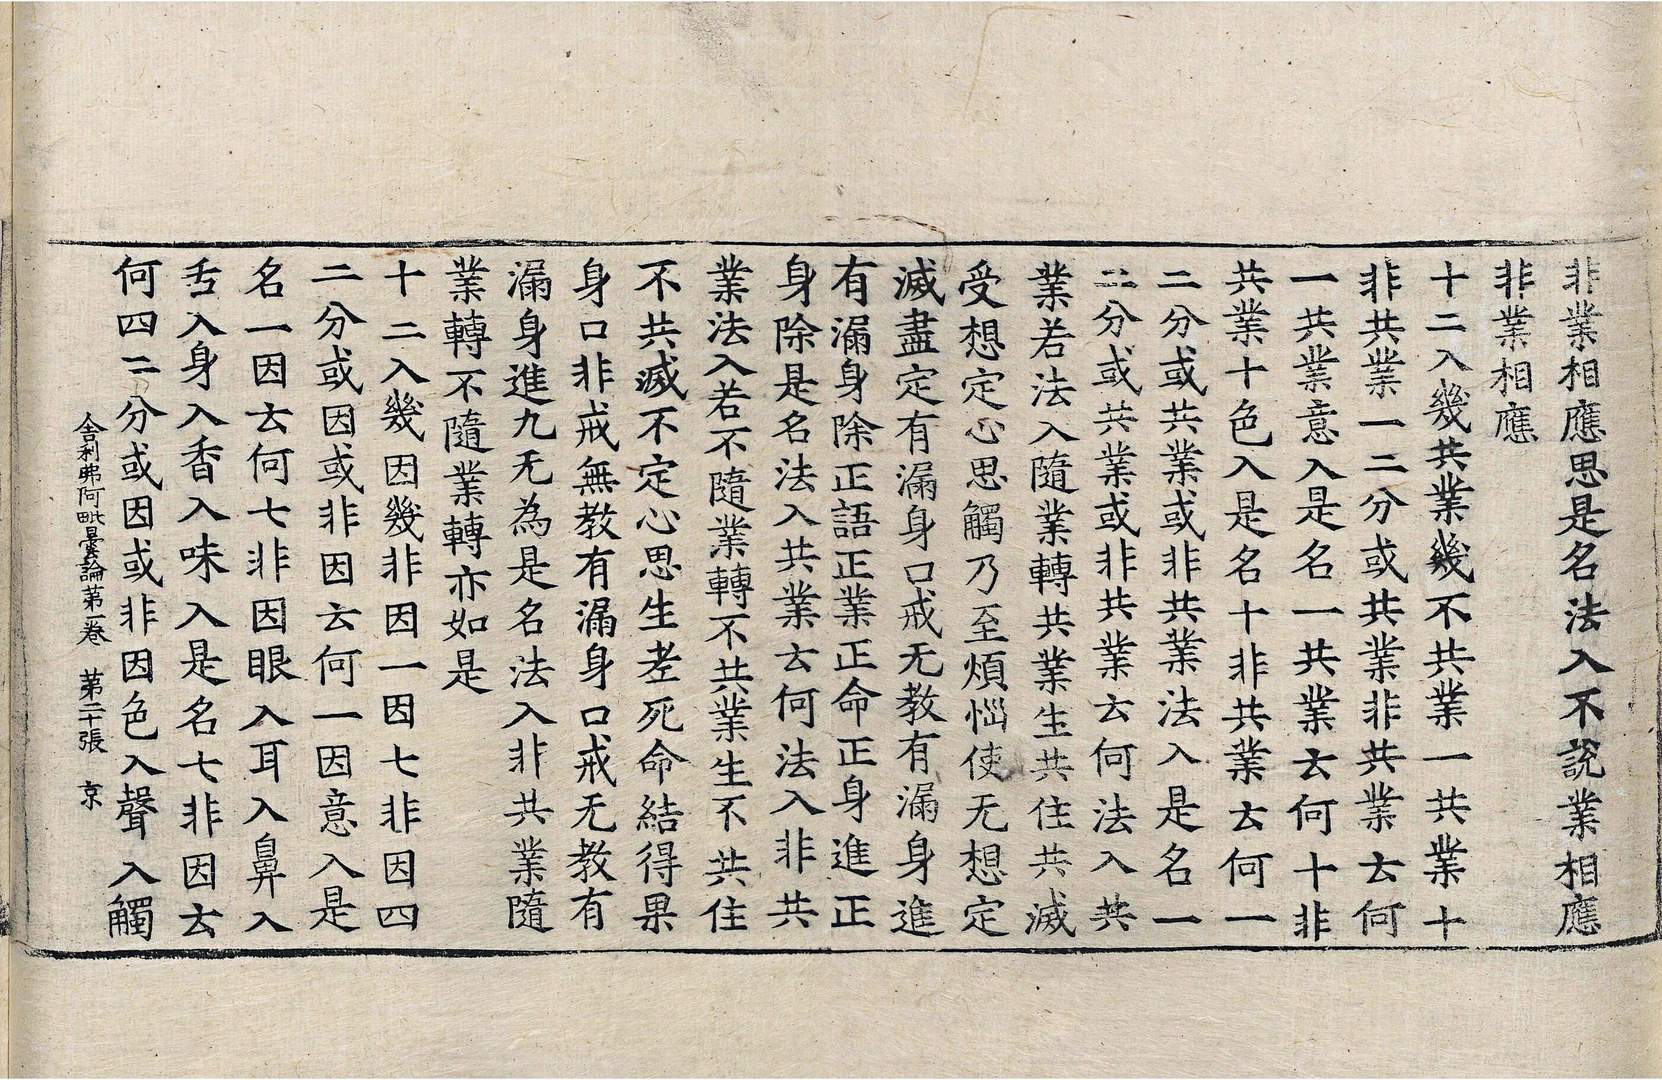 非業相應思是名法入不說業相應
非業相應
十二入幾共業幾不共業一共業十
非共業一二分或共業非共業云何
一共業意入是名一共業云何十非
共業十色入是名十非共業云何一
二分或共業或非共業法入是名一
二分或共業或非共業云何法入共
業若法入隨業轉共業生共住共滅
受想定心思觸乃至煩惱使无想定
滅盡定有漏身口戒无教有漏身進
有漏身除正語正業正命正身進正
身除是名法入共業云何法入非共
業法入若不隨業轉不共業生不共住
不共滅不定心思生老死命結得果
身口非戒無教有漏身口戒无教有
漏身進九无為是名法入非共業隨
業轉不隨業轉亦如是
十二入幾因幾非因一因七非因四
二分或因或非因云何一因意入是
名一因云何七非因眼入耳入鼻入
舌入身入香入味入是名七非因云
何四二分或因或非因色入聲入觸
舍利弗阿毗曇論第一卷 第二十張 京